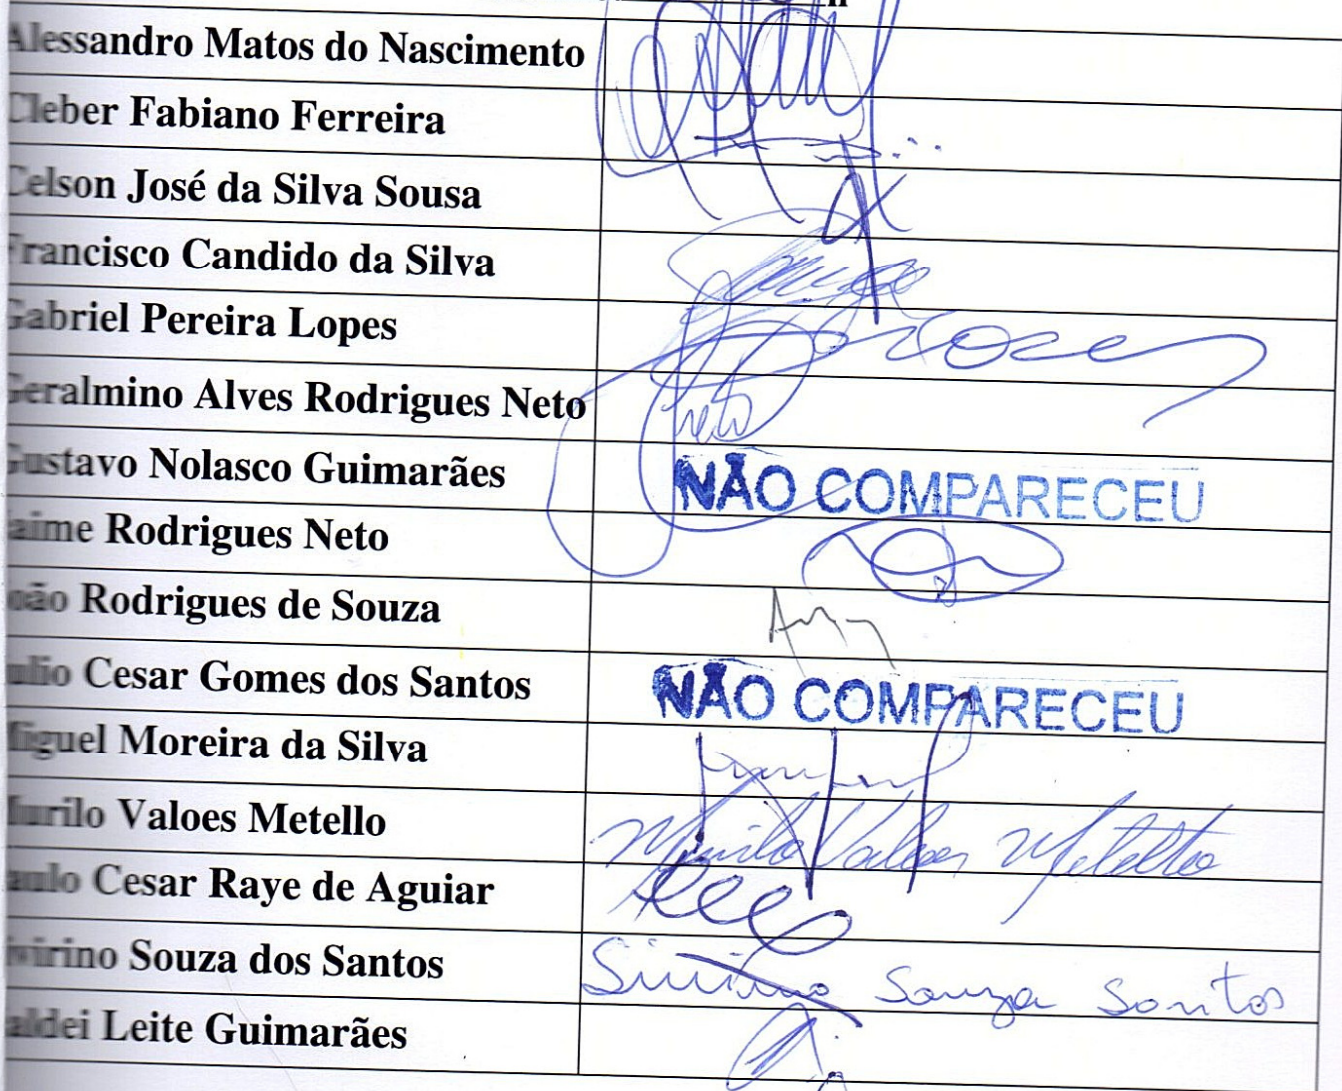 Alessandro Matos do Nascimento
Cleber Fabiano Ferreira
Celson José da Silva Sousa
Francisco Candido da Silva
Gabriel Pereira Lopes
Geralmino Alves Rodrigues Neto
Neto
Gustavo Nolasco Guimarães NÃO COMPARECEU
Jaime Rodrigues Neto
João Rodrigues de Souza
Julio Cesar Gomes dos Santos NÃO COMPARECEU
Miguel Moreira da Silva
Murilo Valoes Metello Murilo Valoes Metello
Paulo Cesar Raye de Aguiar
Sivirino Souza dos Santos Sivirino Souza Santos
aldei Leite Guimarães